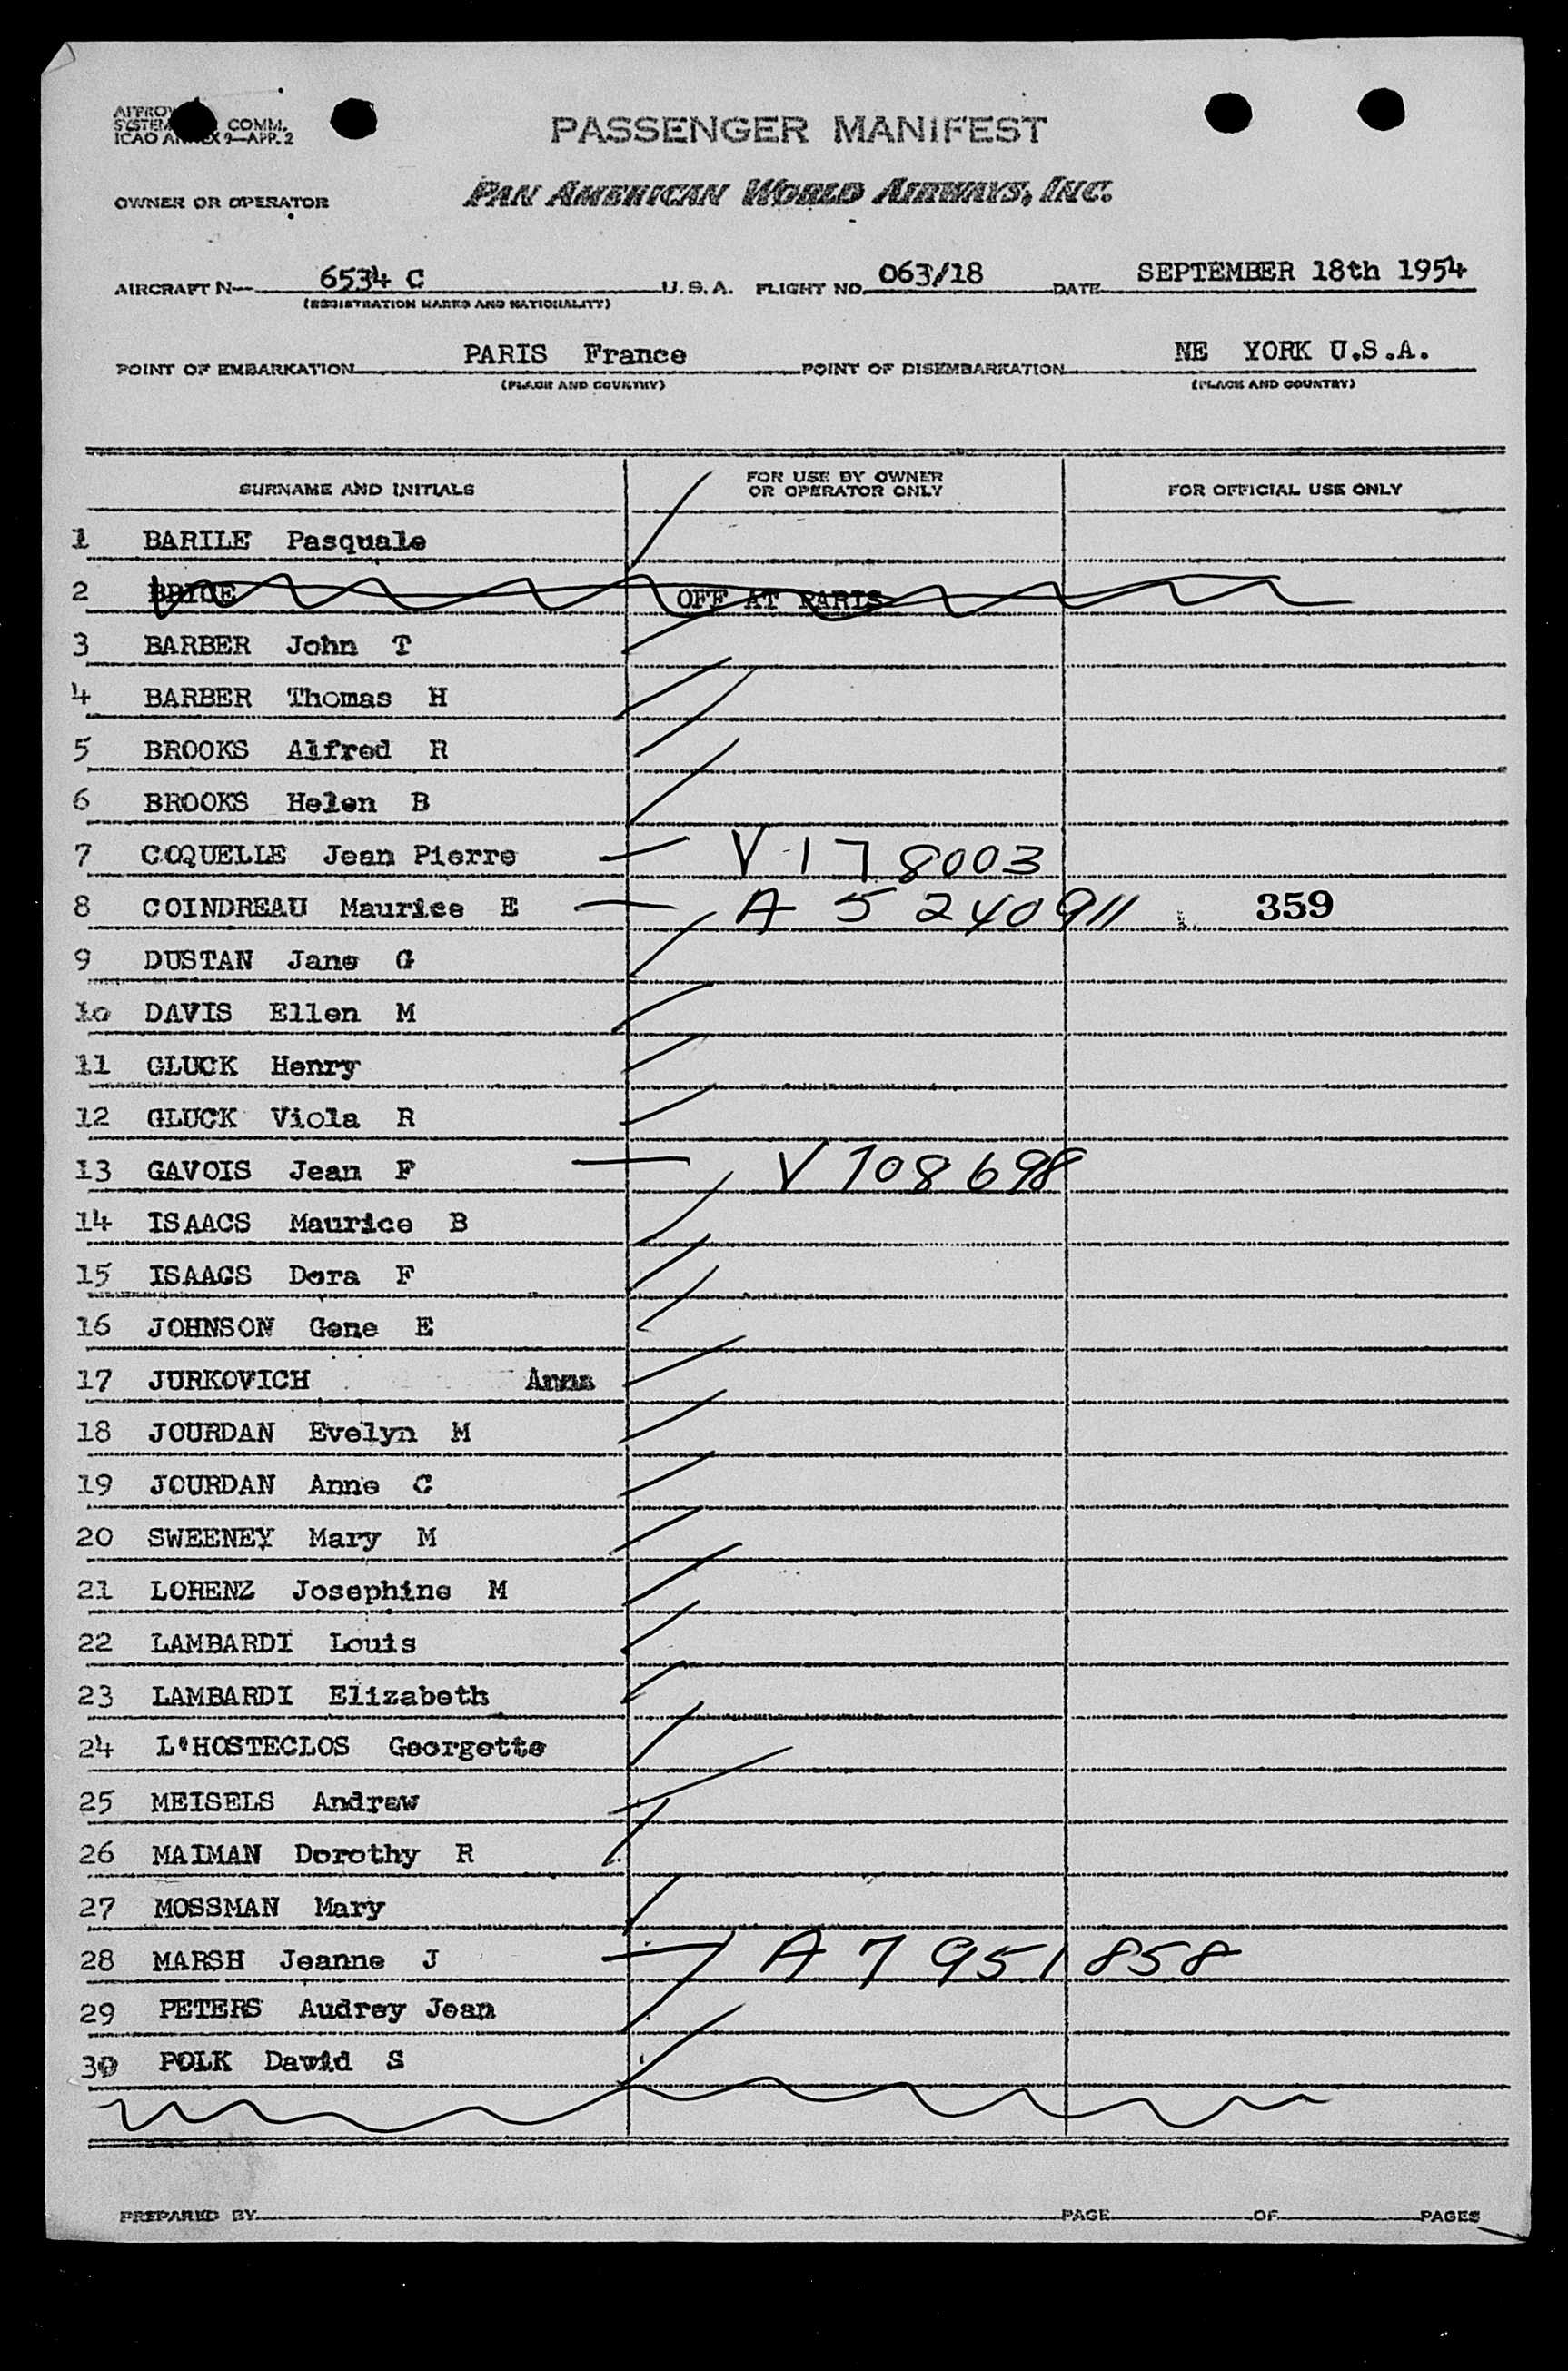 PASSENGER MANIFEST
COMM.
ICAO 9—APP. 2
OWNER OR OPERATOR PAN AMERICAN WORLD AIRWAYS, INC.
AIRCRAFT N— 6534 C U.S.A. FLIGHT NO. 063/18 DATE SEPTEMBER 18th 1954
(REGISTRATION MARKS AND NATIONALITY)
POINT OF EMBARKATION PARIS France POINT OF DISEMBARKATION NE YORK U.S.A.
(PLACE AND COUNTRY) (PLACE AND COUNTRY)
SURNAME AND INITIALS FOR USE BY OWNER OR OPERATOR ONLY FOR OFFICIAL USE ONLY
1 BARILE Pasquale
2 OFF AT PARIS
3 BARBER John T
4 BARBER Thomas H
5 BROOKS Alfred R
6 BROOKS Helen B
7 COQUELLE Jean Pierre V 178003
8 COINDREAU Maurice E A 5240911 359
9 DUSTAN Jane G
10 DAVIS Ellen M
11 GLUCK Henry
12 GLUCK Viola R
13 GAVOIS Jean F V 108698
14 ISAACS Maurice B
15 ISAACS Dora F
16 JOHNSON Gene E
17 JURKOVICH Anna
18 JOURDAN Evelyn M
19 JOURDAN Anne C
20 SWEENEY Mary M
21 LORENZ Josephine M
22 LAMBARDI Louis
23 LAMBARDI Elizabeth
24 L'HOSTECLOS Georgette
25 MEISELS Andrew
26 MAIMAN Dorothy R
27 MOSSMAN Mary
28 MARSH Jeanne J A 7951858
29 PETERS Audrey Jean
30 POLK David S
PREPARED BY PAGE OF PAGES